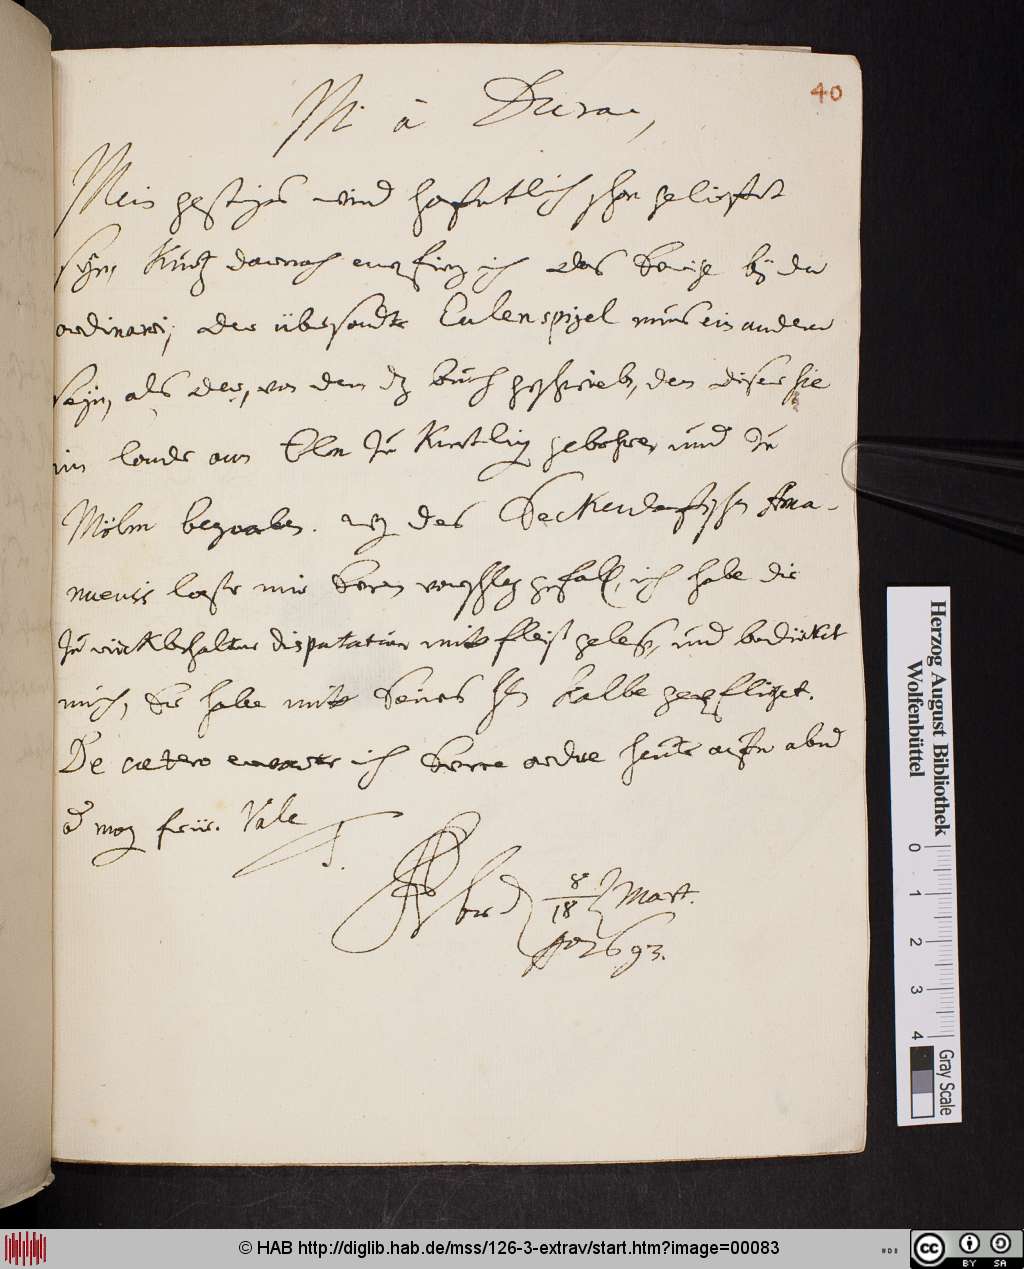 40
Mi à Dura,
Mein gestriges wird hoffentlich schon geliefert
seyn, Kurtz darnach empfieng ich das Seinige bey der
ordinari; der übersandte Eulenspigel mus ein ander
seyn, als der, von dem dz buch geschrieben, den diser hie
im lande am Elm zu Knetling gebohren und zu
Möln begraben. weg des Seckendorfischen Ama-
nuensis laße mir Seinen vorschlag gefallen, ich habe die
zurückbehaltene disputation mit fleiß gelesen, und bedüncket
mich, Er habe mit Seines Hn Kalbe gepflüget.
De cætero erwarte ich Seine ordre heute auffn abend
od morg früe. Vale
T.
8/18 Mart.
Ao 1693.
Herzog August Bibliothek
Wolfenbüttel
0 1 2 3 4
Gray Scale
© HAB http://diglib.hab.de/mss/126-3-extrav/start.htm?image=00083
CC BY SA